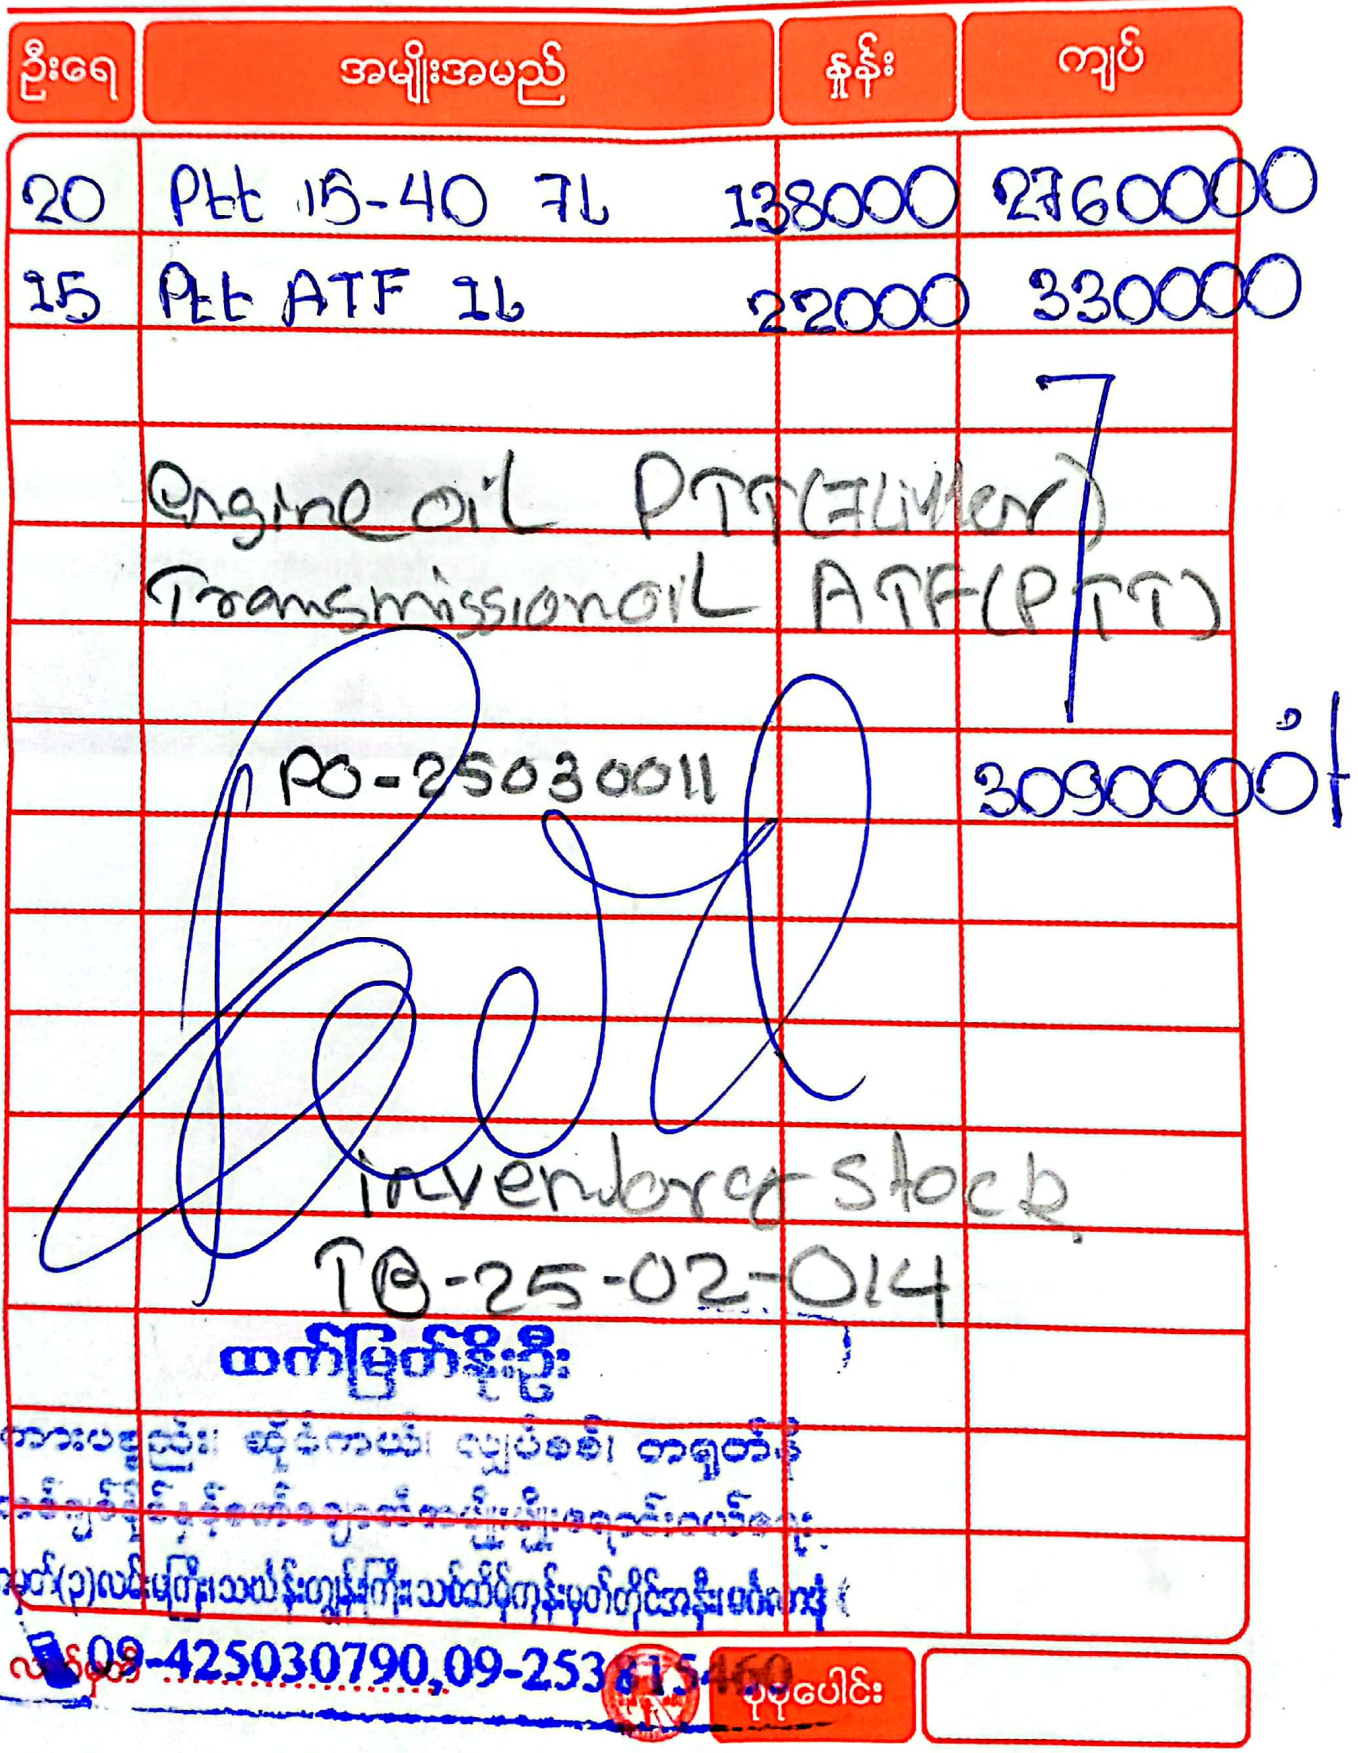 ဦးရေ အမျိုးအမည် နှုန်း ကျပ်
20 Ptt 15-40 7L 138000 2760000
15 Ptt ATF 1L 22000 330000
engine oil PTT(7Litter)
Transmission oil ATF(PTT)
PO-25030011 3090000
inventory stock
TB-25-02-014
ထက်မြတ်နိုးဦး
ကားပစ္စည်း၊ ဆိုင်ကယ်၊ လျှပ်စစ်၊
09-425030790,09-253815460
စုစုပေါင်း